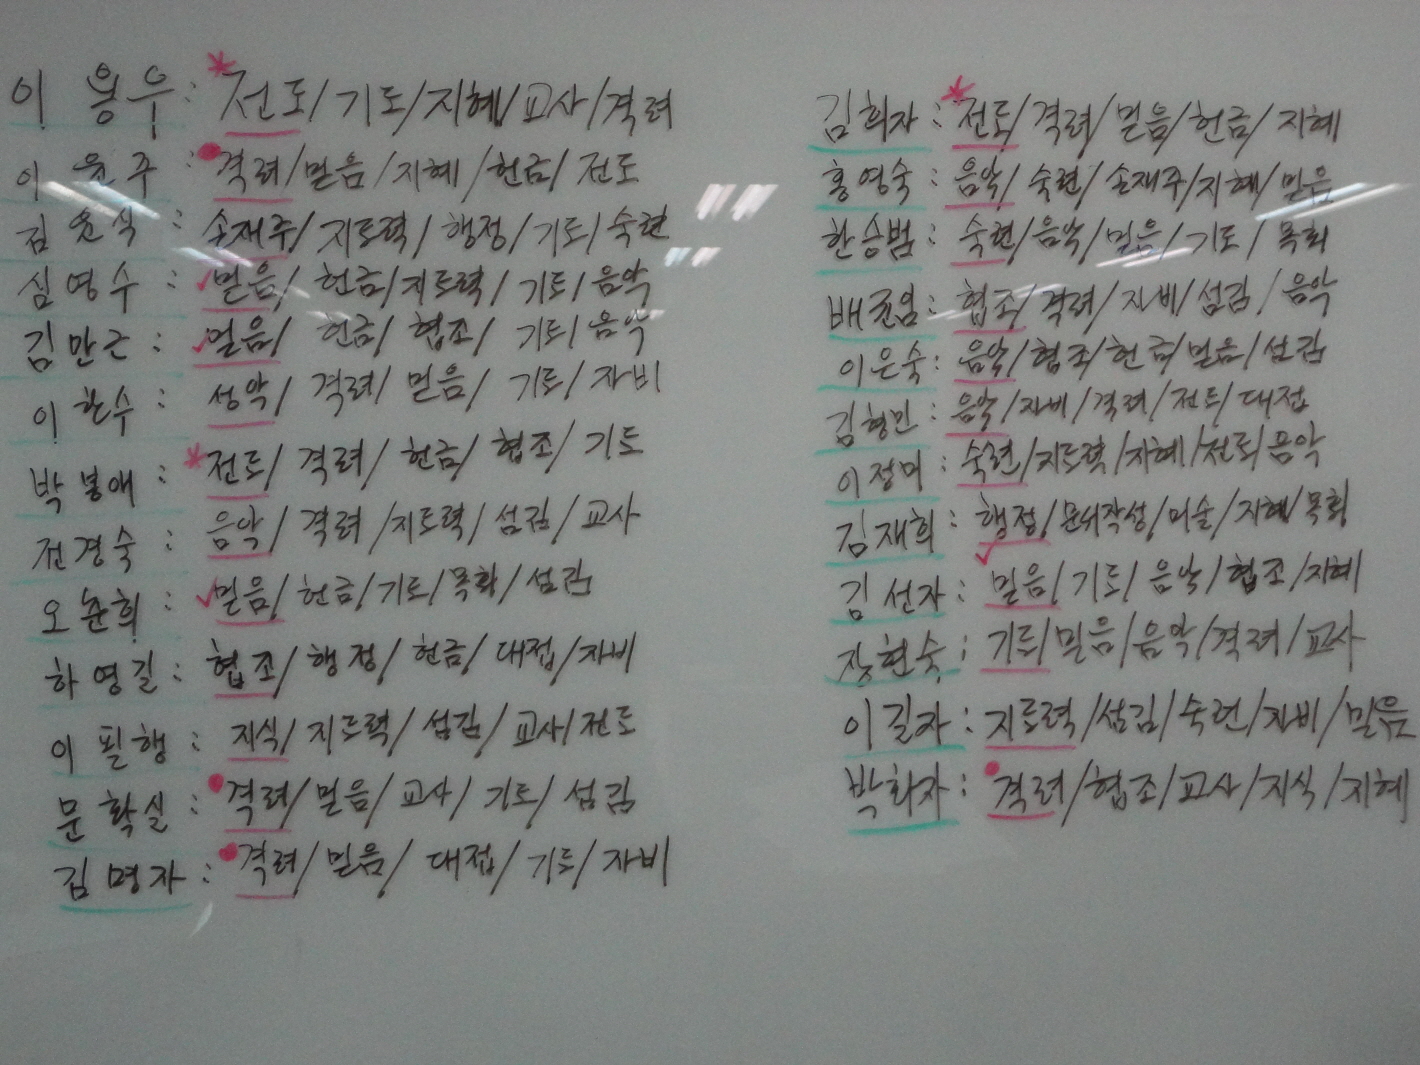 이용우: 전도/기도/지혜/교사/격려
이윤주: 격려/믿음/지혜/헌금/전도
김윤식: 손재주/지도력/행정/기도/숙련
심영수: 믿음/헌금/지도력/기도/음악
김만근: 믿음/헌금/협조/기도/음악
이한수: 성악/격려/믿음/기도/자비
박봉애: 전도/격려/헌금/협조/기도
전경숙: 음악/격려/지도력/섬김/교사
오춘희: 믿음/헌금/기도/목회/섬김
하영길: 협조/행정/헌금/대접/자비
이필행: 지식/지도력/섬김/교사/전도
문확실: 격려/믿음/교사/기도/섬김
김명자: 격려/믿음/대접/기도/자비
김희자: 전도/격려/믿음/헌금/지혜
홍영숙: 음악/숙련/손재주/지혜/믿음
한승범: 숙련/음악/믿음/기도/목회
배권임: 협조/격려/자비/섬김/음악
이은숙: 음악/협조/헌금/믿음/섬김
김형민: 음악/자비/격려/전도/대접
이정미: 숙련/지도력/지혜/전도/음악
김재희: 행정/문서작성/미술/지혜/목회
김선자: 믿음/기도/음악/협조/지혜
장현숙: 기도/믿음/음악/격려/교사
이길자: 지도력/섬김/숙련/자비/믿음
박화자: 격려/협조/교사/지식/지혜